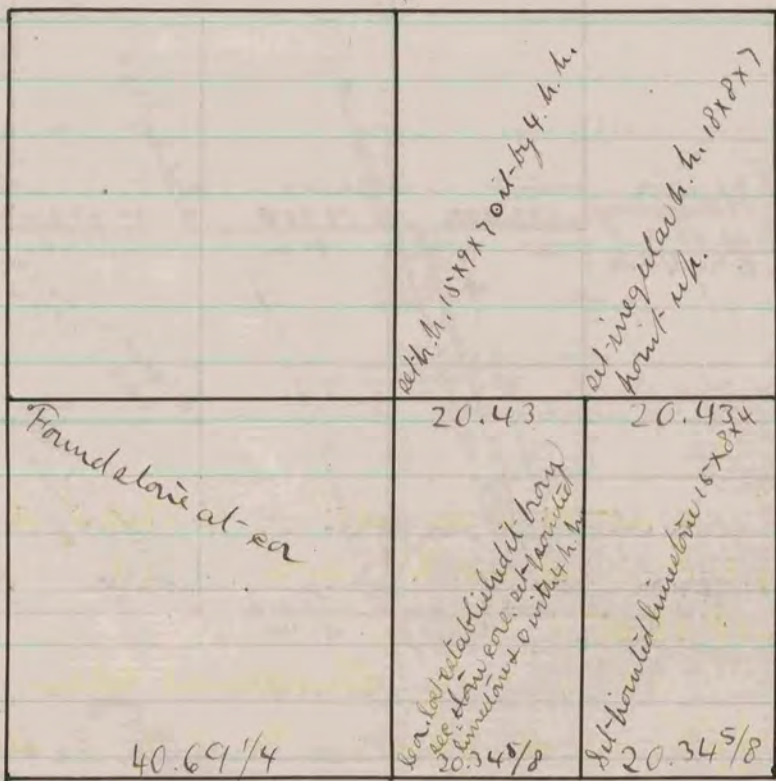 set h.h. 15x9x7 ⊙ it by 4. h.h.
set irregular h.h. 18x8x7
point up.
Found stone at cor
20.43
20.43
Cor. lost established it from
section cors. set pointed
limestone & ⊙ with 4 h.h.
20.34 5/8
Set pointed limestone 15x8x4
20.34 5/8
40.69 1/4